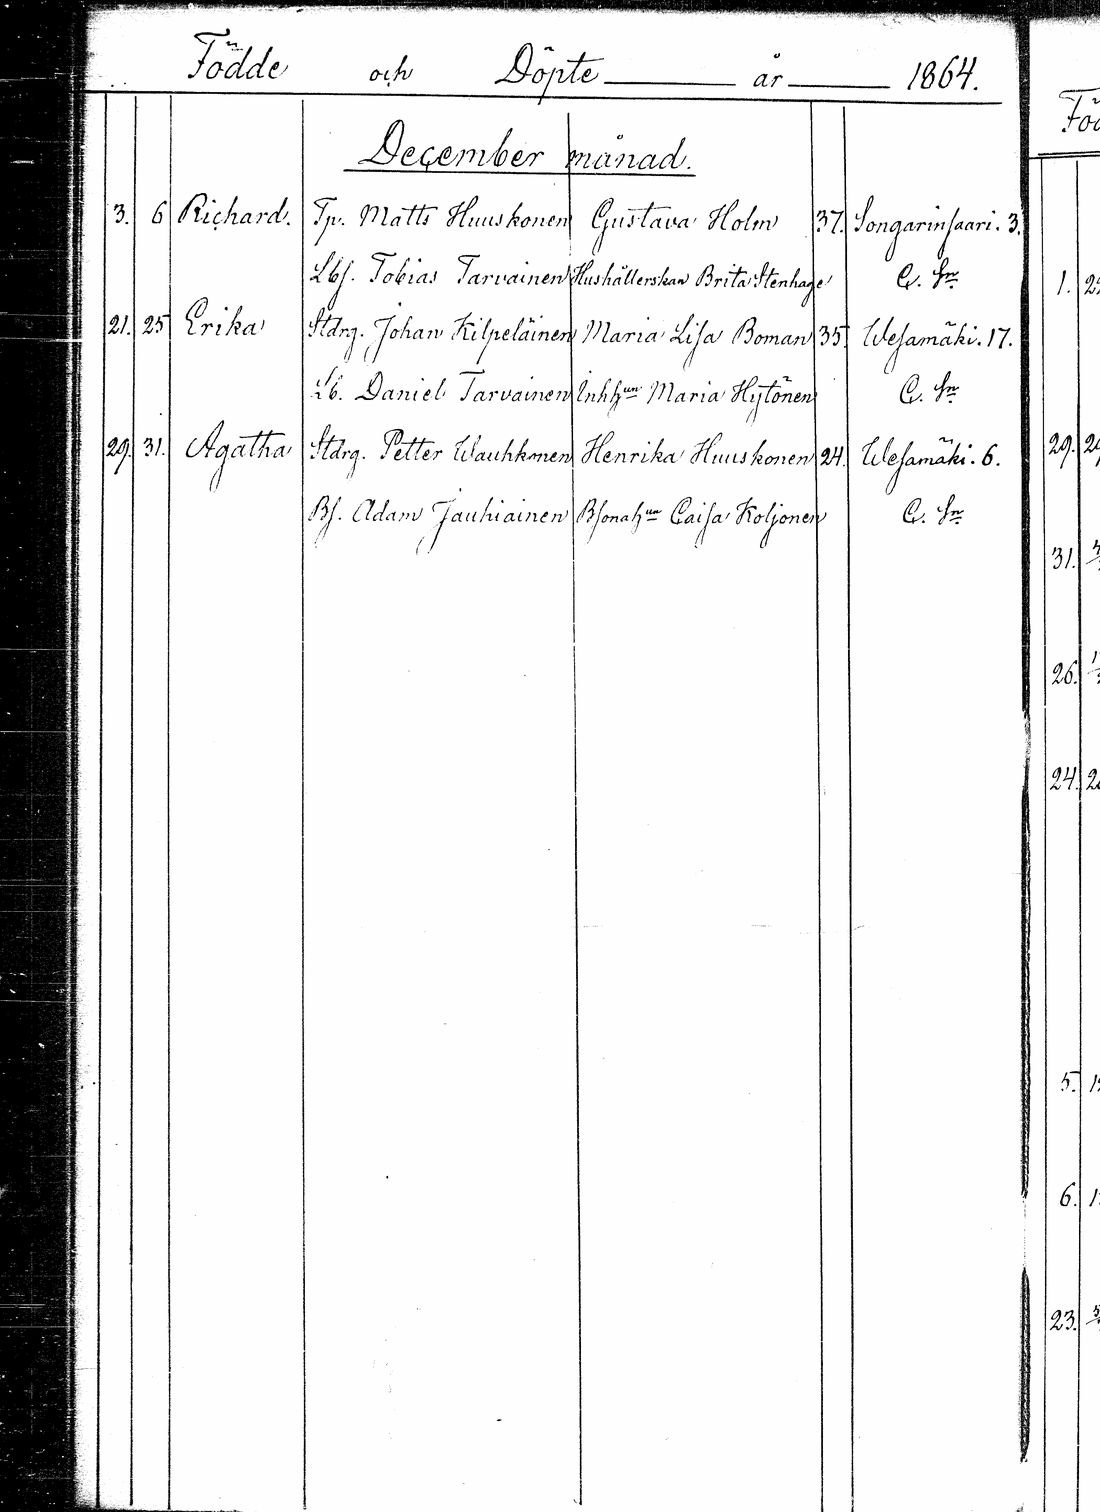 Födde och Döpte år 1864.
December månad.
3. 6 Richard. Tp. Matts Huuskonen Gustava Holm 37. Songarinsaari. 3.
Lbs. Tobias Tarvainen Hushållerskan Brita Stenhage C. Sn
21. 25 Erika Stdrg. Johan Kilpeläinen Maria Lisa Boman 35 Wesamäki. 17.
Lb. Daniel Tarvainen Inhhun Maria Hytönen C. Sn
29. 31. Agatha Stdrg. Petter Wauhkonen Henrika Huuskonen 24. Wesamäki. 6.
Bs. Adam Jauhiainen Bsonahun Caisa Koljonen C. Sn
1.
29.
31.
26.
24.
5.
6.
23.